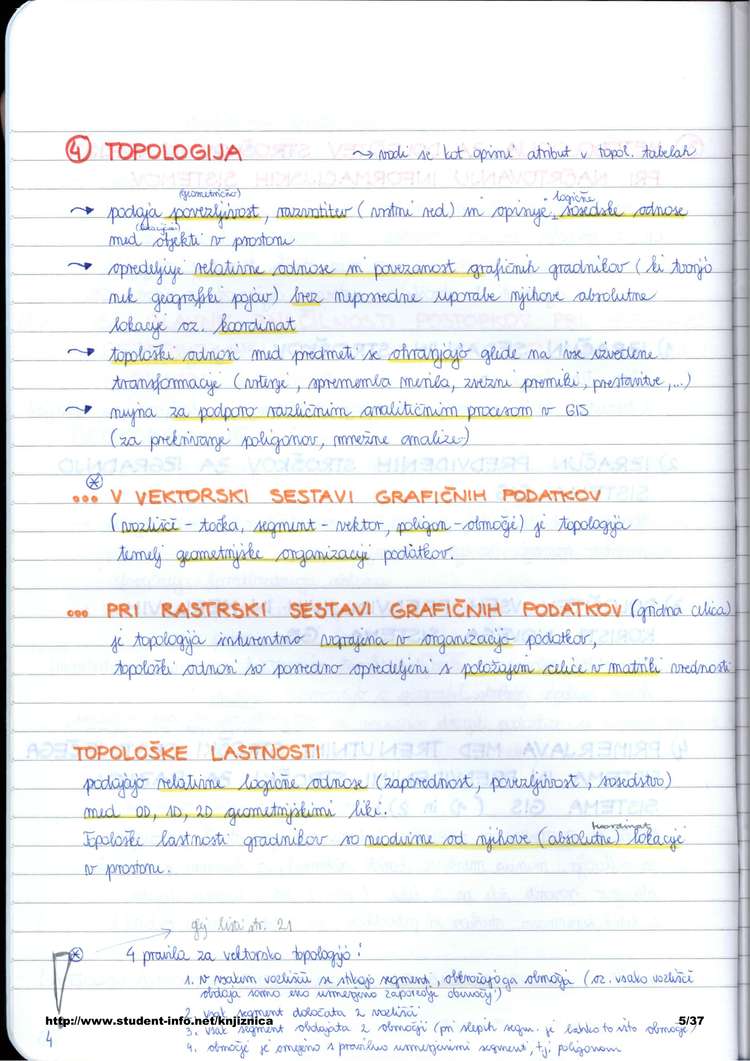 ④ TOPOLOGIJA ~> vodi se kot opisni atribut v topol. tabelah
(geometrično) logične
~> podaja povezljivost, razvrstitev (vrstni red) in opisuje sosedske odnose
(lokacija)
med objekti v prostoru
~> opredeljuje relativne odnose in povezanost grafičnih gradnikov (ki tvorijo
nek geografski pojav) brez neposredne uporabe njihove absolutne
lokacije oz. koordinat
~> topološki odnosi med predmeti se ohranjajo glede na vse izvedene
transformacije (vrtenje, sprememba merila, zvezni premiki, prestavitve,...)
~> nujna za podporo različnim analitičnim procesom v GIS
(za prekrivanje poligonov, mrežne analize)
*
... V VEKTORSKI SESTAVI GRAFIČNIH PODATKOV
(vozlišči - točka, segment - vektor, poligon - območje) je topologija
temelj geometrijske organizacije podatkov.
... PRI RASTRSKI SESTAVI GRAFIČNIH PODATKOV (gridna celica)
je topologija inherentno vgrajena v organizacijo podatkov,
topološki odnosi so posredno opredeljeni s položajem celice v matriki vrednosti
TOPOLOŠKE LASTNOSTI
podajajo relativne logične odnose (zaporednost, povezljivost, sosedstvo)
med 0D, 1D, 2D geometrijskimi liki.
koordinat
Topološke lastnosti gradnikov so neodvisne od njihove (absolutne) lokacije
v prostoru.
glej lista str. 21
* 4 pravila za vektorsko topologijo:
1. v vsakem vozlišču se stikajo segmenti, obkrožajo ga območja (oz. vsako vozlišče
obdaja samo eno usmerjeno zaporedje območij)
2. vsak segment določata 2 vozlišči
http://www.student-info.net/knjiznica 5/37
3. vsak segment obdajata 2 območji (pri slepih segm. je lahko to isto območje)
4. območje je omejeno s pravilno usmerjenimi segmenti, t.j. poligonom
4